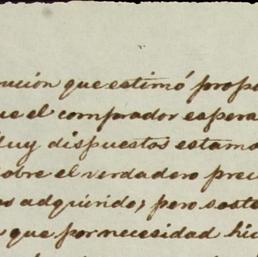 que estimó
que el comprador espera
dispuestos estamo
sobre el verdadero prec
adquirido; pero soste
que por necesidad hic